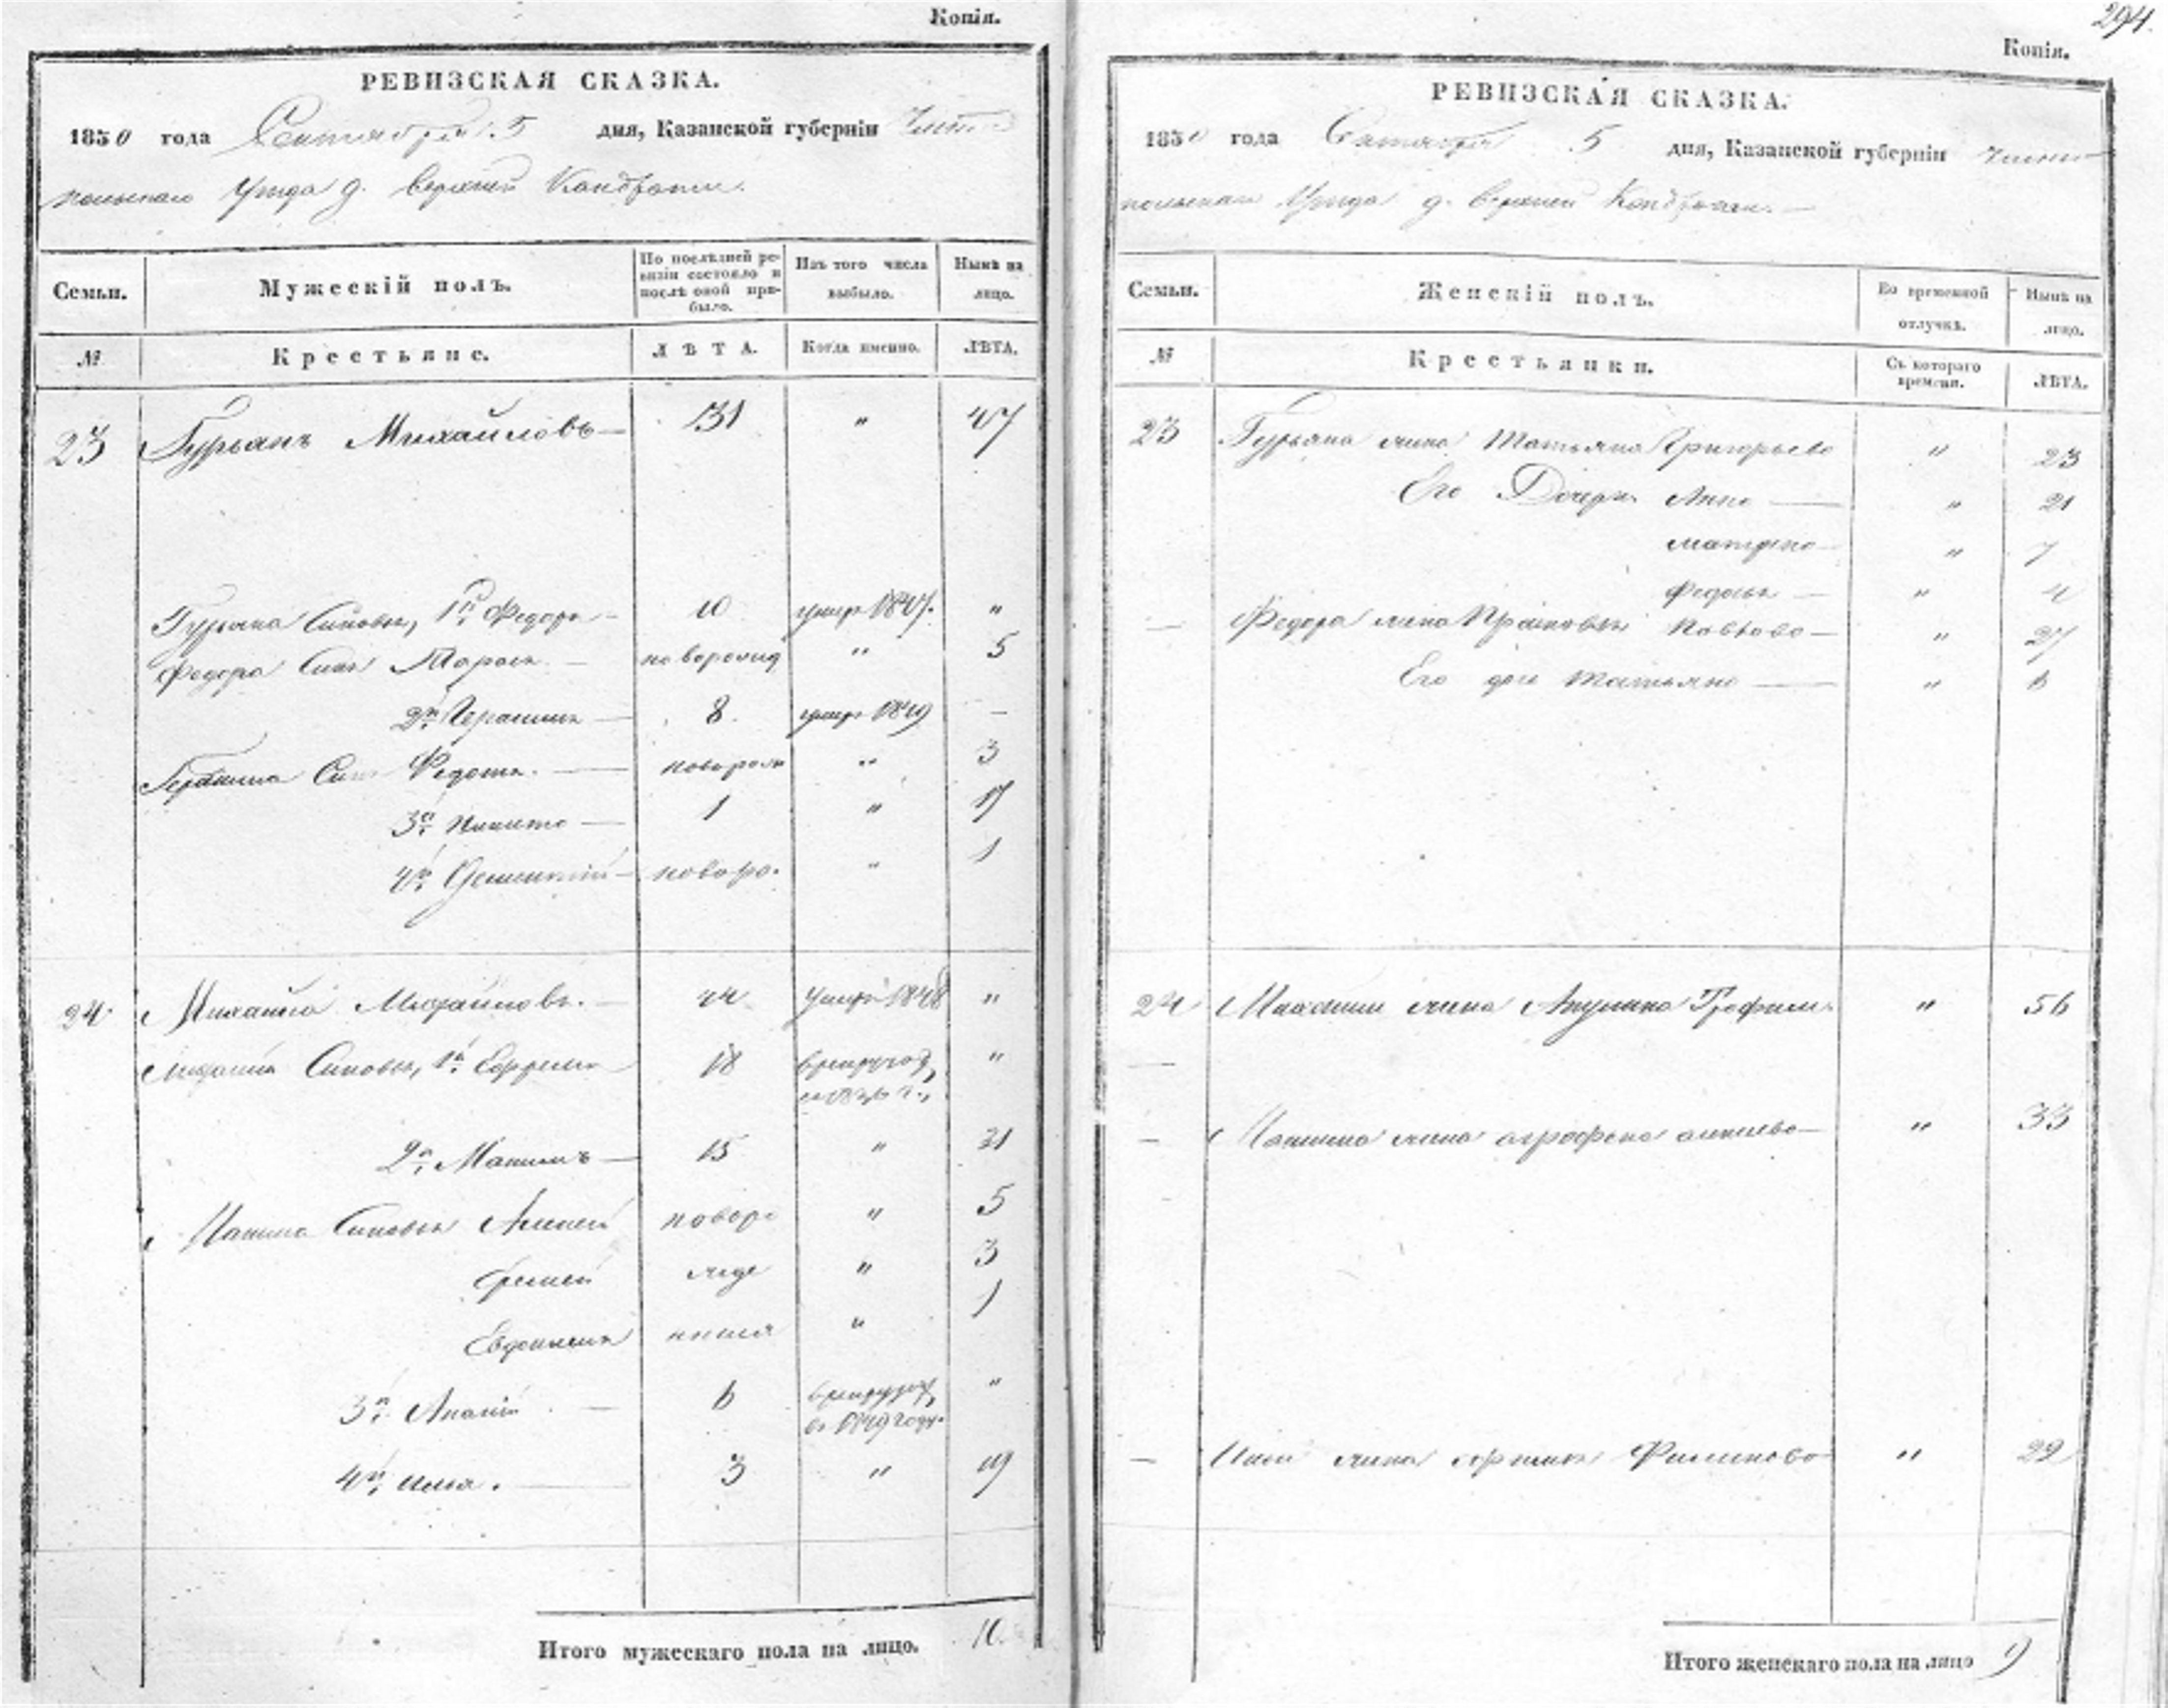 Копія.
РЕВИЗСКАЯ СКАЗКА.
1850 года Сентября 5 дня, Казанской губерніи Чисто
польскаго Уезда д. верхней Кондраты.
Семьи. Мужескій полъ. По послѣдней ревизіи состояло и послѣ оной прибыло. Изъ того числа выбыло. Нынѣ на лицо.
№ Крестьяне. ЛѢТА. Когда именно. ЛѢТА.
23 Гурьянъ Михайловъ 31 " 47
Гурьяна Сыновья, 1й Федоръ 10 умер 1847. "
Федора Сынъ Тарасъ новорожд " 5
2й Герасимъ 8 умер 1849 —
Герасима Сынъ Федотъ новорож " 3
3й Никита 1 " 17
4й новоро. " 1
24 Михайла Михайловъ. 44 умеръ 1848 "
Михайлы Сыновья, 1й Ефремъ 18 в рекрут "
2й Максимъ 15 " 31
Максима Сыновья Алексей новоро " 5
Еремей жде " 3
Евдокимъ нныя " 1
3й Ананій 6 в рекрут "
въ 1849 году.
4й Илья. 3 " 19
Итого мужескаго пола на лицо. 10
294.
Копія.
РЕВИЗСКАЯ СКАЗКА.
1850 года Сентября 5 дня, Казанской губерніи Чисто
польскаго Уезда д. верхней Кондраты.
Семьи. Женскій полъ. Во временной отлучкѣ. Нынѣ на лицо.
№ Крестьянки. Съ котораго времени. ЛѢТА.
23 Гурьяна жена Татьяна Григорьева " 23
Его Дочери Анна " 21
матрена " 7
Федосья " 4
— Федора жена Прасковья Павлова " 27
Его доч Татьяна " 6
24 жена Акулина Трофим " 56
—
— Максима жена аграфена алексеева " 33
— Ильи жена Филипова " 22
Итого женскаго пола на лицо 9